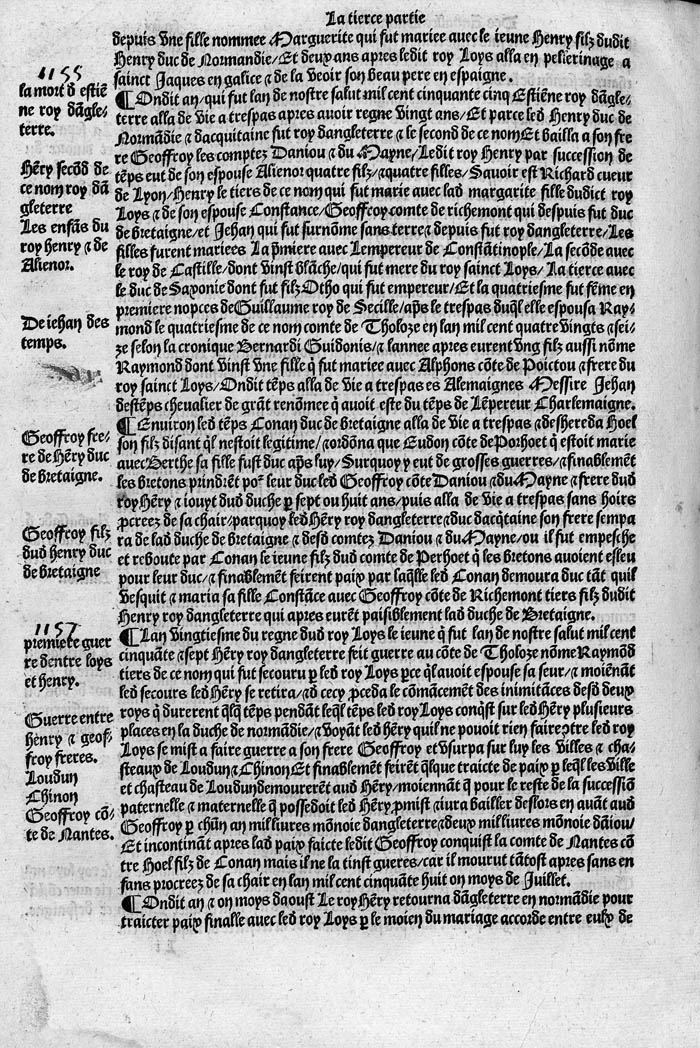 La tierce partie
depuis vne fille nommee Marguerite qui fut mariee auec le ieune Henry filz dudit
Henry duc de Normandie/Et deux ans apres ledit roy Loys alla en pelerinage a
sainct Jaques en galice ⁊ de la veoir son beau pere en espaigne.
1155
la mort d̄ estiē
ne roy dāgle-
terre.
¶ Ondit an/qui fut lan de nostre salut mil cent cinquante cinq Estiēne roy dāgle-
terre alla de vie a trespas apres auoir regne vingt ans/Et parce led Henry duc de
Normādie ⁊ dacquitaine fut roy dangleterre ⁊ le second de ce nom Et bailla a son fre
re Geoffroy les comptez Daniou ⁊ du Mayne/Ledit roy Henry par succession de
Hēry secōd de
ce nom roy dā
gleterre
Les enfās du
roy henry ⁊ de
Alienor.
tēps eut de son espouse Alienor quatre filz/⁊quatre filles/Sauoir est Richard cueur
de Lyon/Henry le tiers de ce nom qui fut marie auec lad margarite fille dudict roy
Loys ⁊ de son espouse Constance/Geoffroy comte de richemont qui despuis fut duc
de bretaigne/et Jehan qui fut surnōme sans terre ⁊ depuis fut roy dangleterre/Les
filles furent mariees La p̄miere auec Lempereur de Constātinople/La secōde auec
le roy de Castille/dont vinst blāche/qui fut mere du roy sainct Loys/La tierce auec
le duc de Saxonie dont fut filz Otho qui fut empereur/Et la quatriesme fut fēme en
premiere nopces de Guillaume roy de Secille/ap̄s le trespas duq̄l elle espousa Ray-
De iehan des
temps.
mond le quatriesme de ce nom comte de Tholoze en lan mil cent quatre vingts ⁊ sei-
ze selon la cronique Bernardi Guidonis/⁊ lannee apres eurent vng filz aussi nōme
Raymond dont vinst vne fille q̄ fut mariee auec Alphons cōte de Poictou ⁊ frere du
roy sainct Loys/Ondit tēps alla de vie a trespas es Alemaignes Messire Jehan
destēps cheualier de grāt renōmee q̄ auoit este du tēps de Lēpereur Charlemaigne.
¶ Enuiron led tēps Conan duc de bretaigne alla de vie a trespas ⁊ deshereda Hoel
Geoffroy fre-
re de Hēry duc
de bretaigne.
son filz disant q̄l nestoit legitime/⁊ordōna que Eudon cōte de Porhoet q̄ estoit marie
auec Berthe sa fille fust duc ap̄s luy/Surquoy y eut de grosses guerres/⁊finablemēt
les bretons prindrēt po᷑ leur duc led Geoffroy cōte Daniou ⁊ du Mayne ⁊ frere dud
roy Hēry ⁊ iouyt dud duche ꝑ sept ou huit ans/puis alla de vie a trespas sans hoirs
ꝓcreez de sa chair/parquoy led Hēry roy dangleterre ⁊duc dacq̄taine son frere sempa
Geoffroy filz
dud henry duc
de bretaigne
ra de lad duche de bretaigne ⁊ desd comtez Daniou ⁊ du Mayne/ou il fut empesche
et reboute par Conan le ieune filz dud comte de Perhoet q̄ les bretons auoient esleu
pour leur duc/⁊ finablemēt feirent paix par laq̄lle led Conan demoura duc tāt quil
vesquit ⁊ maria sa fille Constāce auec Geoffroy cōte de Richemont tiers filz dudit
Henry roy dangleterre qui apres eurēt paisiblement lad duche de Bretaigne.
1157
premiere guer
re dentre loys
et henry.
¶ Lan vingtiesme du regne dud roy Loys le ieune q̄ fut lan de nostre salut mil cent
cinquāte ⁊sept Hēry roy dangleterre feit guerre au cōte de Tholoze nōme Raymōd
tiers de ce nom qui fut secouru ꝑ led roy Loys ꝑce q̄l auoit espouse sa seur/⁊ moiēnāt
led secours led Hēry se retira/⁊d cecy ꝓceda le cōmācemēt des inimitāces desd deux
roys q̄ durerent q̄lq̄ tēps pendāt leq̄l tēps led roy Loys conq̄st sur led Hēry plusieurs
Guerre entre
henry ⁊ geof-
froy freres.
Loudun
Chinon
Geoffroy cō-
te de Nantes.
places en la duche de normādie/⁊voyāt led hēry quil ne pouoit rien faire ↄtre led roy
Loys se mist a faire guerre a son frere Geoffroy et vsurpa sur luy les villes ⁊ cha-
steaux de Loudun ⁊ Chinon Et finablemēt feirēt q̄lque traicte de paix ꝑ leq̄l les ville
et chasteau de Loudun demourerēt aud Hēry/moiennāt q̄ pour le reste de la successiō
paternelle ⁊ maternelle q̄ possedoit led Hēry ꝓmist ⁊iura bailler deslors en auāt aud
Geoffroy ꝑ chūn an mil liures mōnoie dangleterre ⁊deux mil liures mōnoie dāiou/
Et incontināt apres lad paix faicte ledit Geoffroy conquist la comte de Nantes cō
tre Hoel filz de Conan mais il ne la tinst gueres/car il mourut tātost apres sans en
fans procreez de sa chair en lan mil cent cinquāte huit on moys de Juillet.
¶ Ondit an ⁊ on moys daoust Le roy Hēry retourna dāgleterre en normādie pour
traicter paix finalle auec led roy Loys ꝑ le moien du mariage accorde entre eulx de